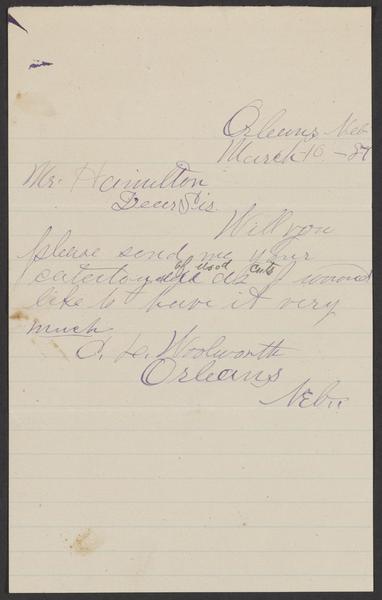 Orleans Neb
March 16 - 87
Mr. Hamilton
Dear Sir
Will you
please send me your
of wood cuts
I would
like to have it very
much
Woolworth
Orleans
Nebr